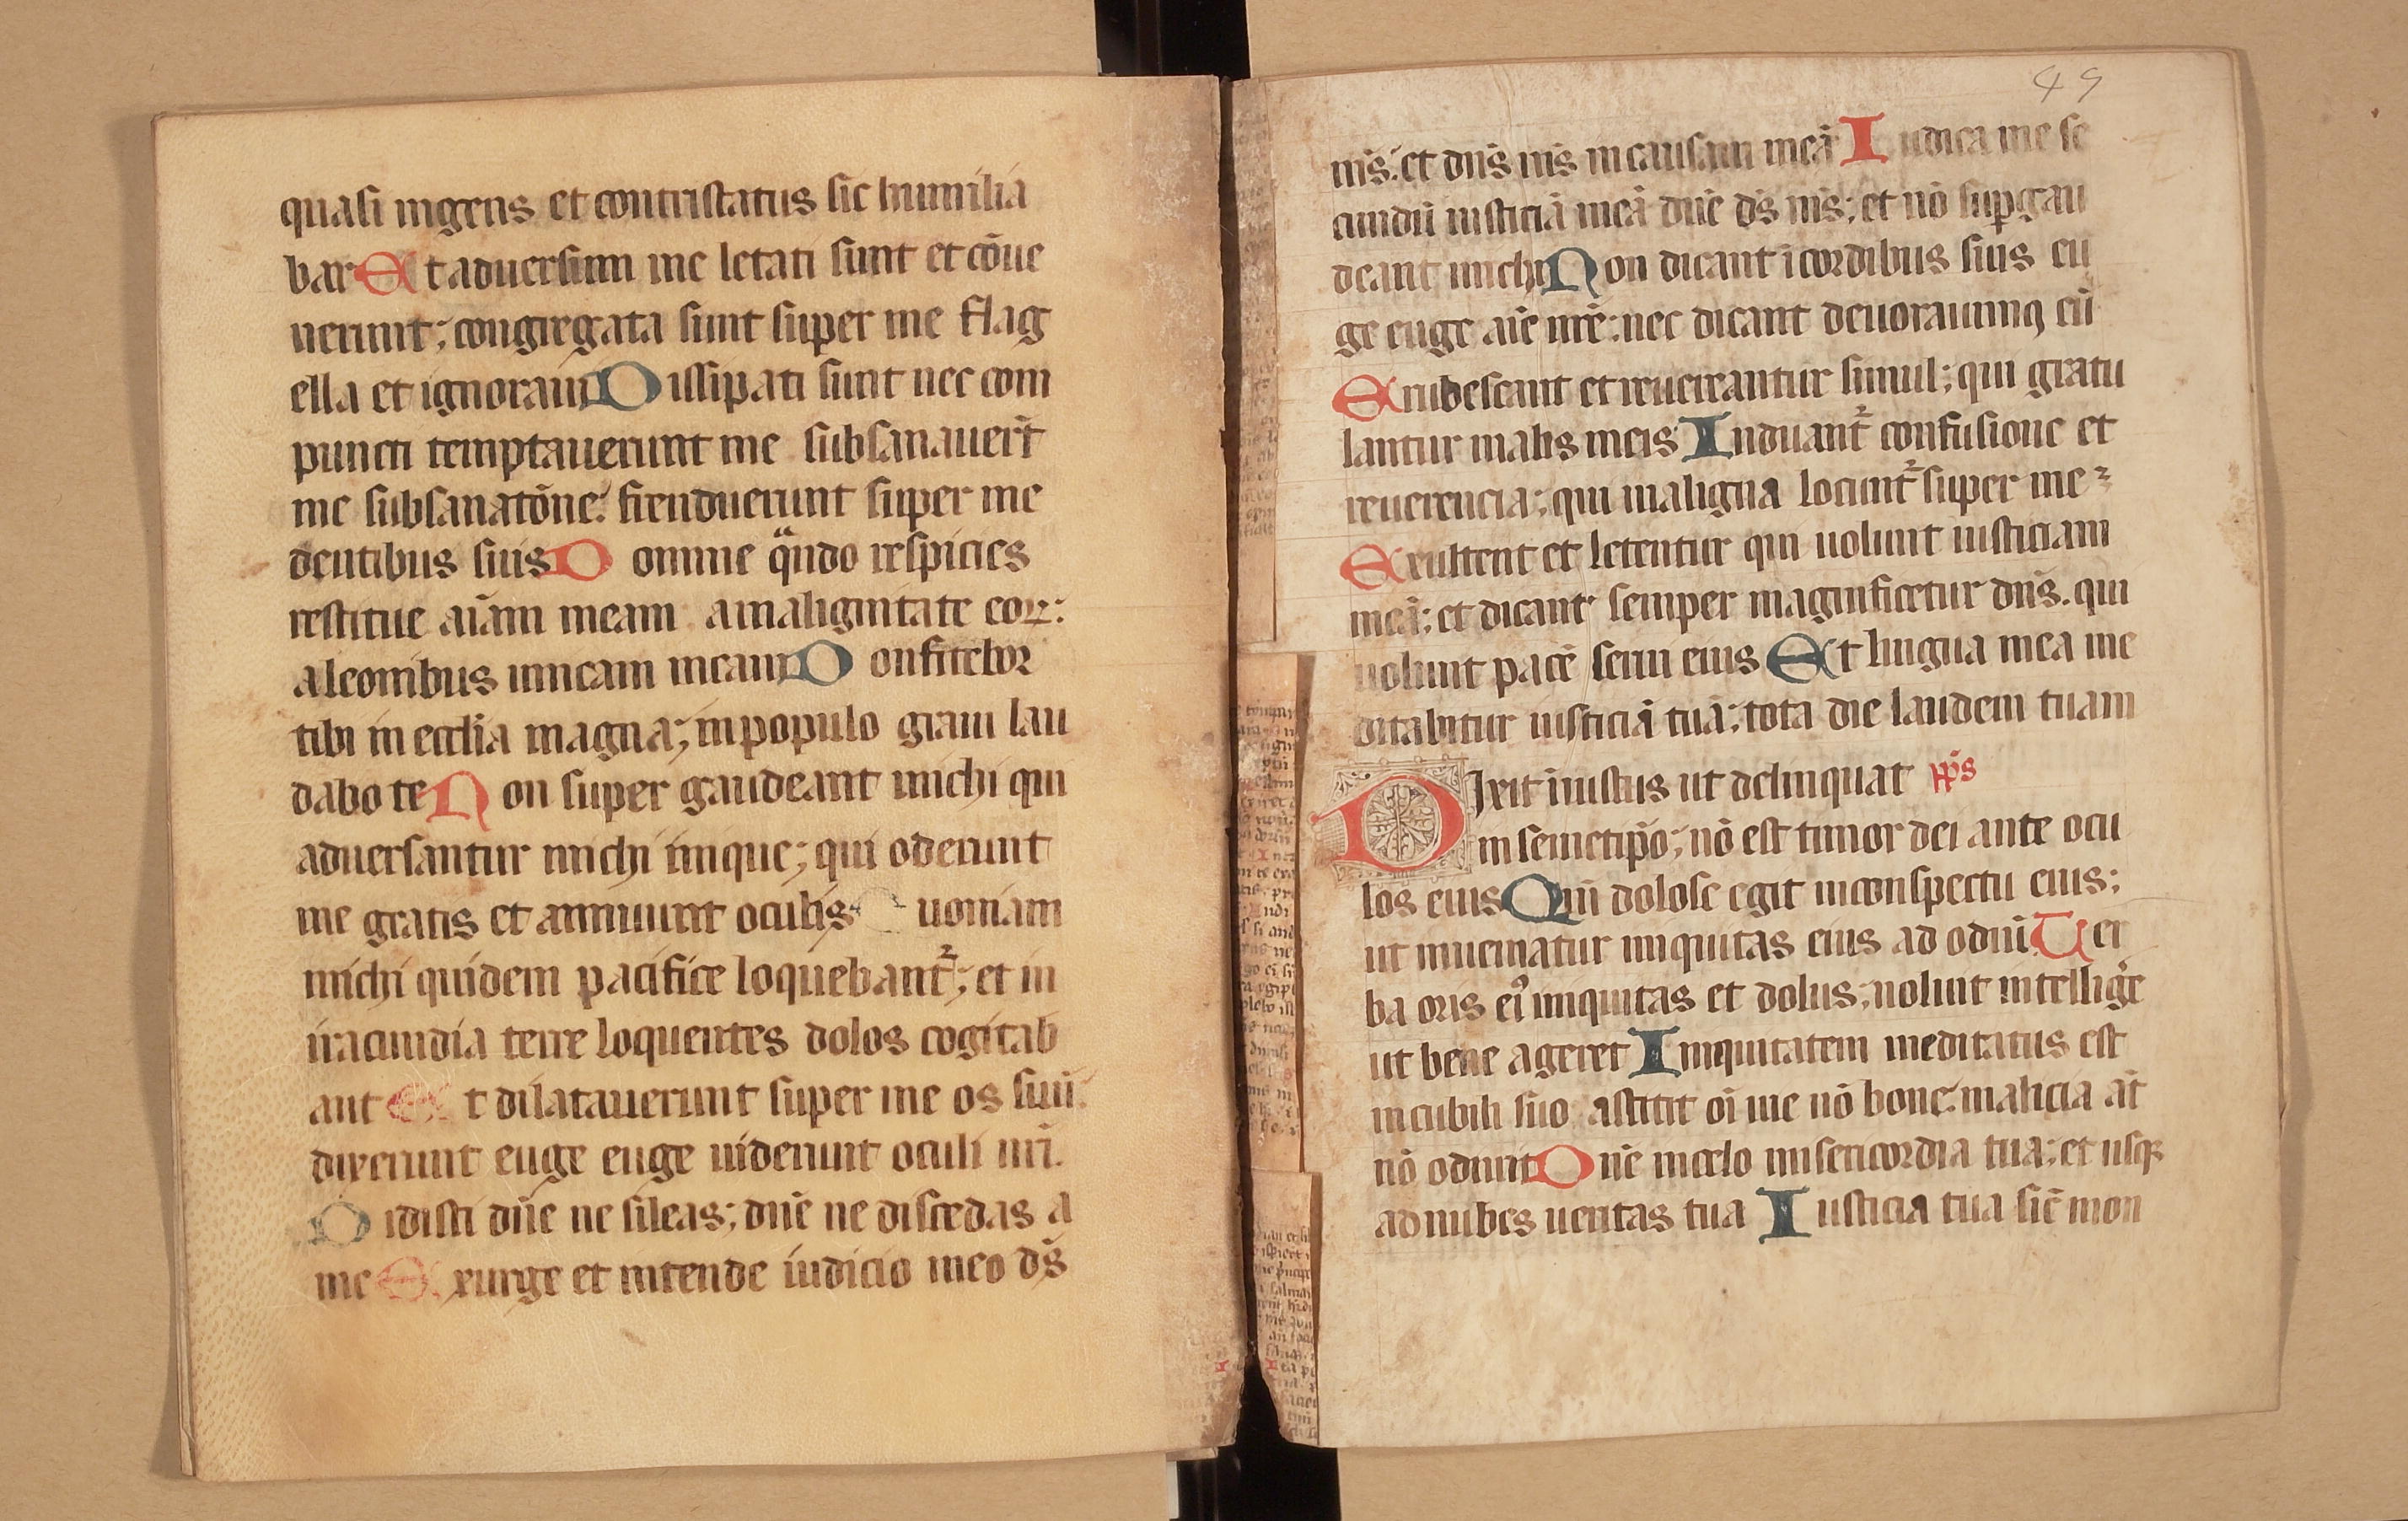 quasi ingens et contristatus sic humilia
bar Et aduersum me letati sunt et cōue
nerunt; congregata sunt super me flag
ella et ignoraui Dissipati sunt nec com
puncti temptauerunt me subsanauerт̄
me subsanatōne: frenduerunt super me
dentibus suis Domine qͣndo respicies
restitue aīam meam a malignitate eoꝝ:
a leonibus unicam meam Confitebor
tibi in ecclīa magna; in populo graui lau
dabo te Non super gaudeant michi qui
aduersantur michi inique; qui oderunt
me gratis et annuunt oculis Quoniam
michi quidem pacifice loquebant᷑; et in
iracundia terre loquentes dolos cogitab
ant Et dilatauerunt super me os suū.
dixerunt euge euge uiderunt oculi nr̄i.
Uidisti dn̄e ne sileas; dn̄e ne discedas a
me Exurge et intende iudicio meo ds̄
49
ms̄: et dn̄s ms̄ in causam meā Iudica me se
cundū iusticiā meā dn̄e ds̄ ms̄; et nō suꝑgau
deant michi Non dicant ī cordibus suis eu
ge euge aīe nr̄e: nec dicant deuorauimꝰ eū
Erubescant et reuereantur simul; qui gratu
lantur malis meis Induant᷑ confusione et
reuerencia; qui maligna locunt᷑ super me
Exultent et letentur qui uolunt iusticiam
meā; et dicant semper magnificetur dn̄s. qui
uolunt pacē serui eius Et lingua mea me
ditabitur iusticiā tuā; tota die laudem tuam
Dixit īiustus ut delinquat p̄s
in semetip̄o; nō est timor dei ante ocu
los eius Qm̄ dolose egit in conspectu eius;
ut inueniatur iniquitas eius ad odiū. Uer
ba oris eiꝰ iniquitas et dolus; noluit intelliḡe
ut bene ageret Iniquitatem meditatus est
in cubili suo astitit oī uie nō bone: malicia āt
nō odiuit Dn̄e in celo misericordia tua; et usqꝫ
ad nubes ueritas tua Iusticia tua sic̄ mon